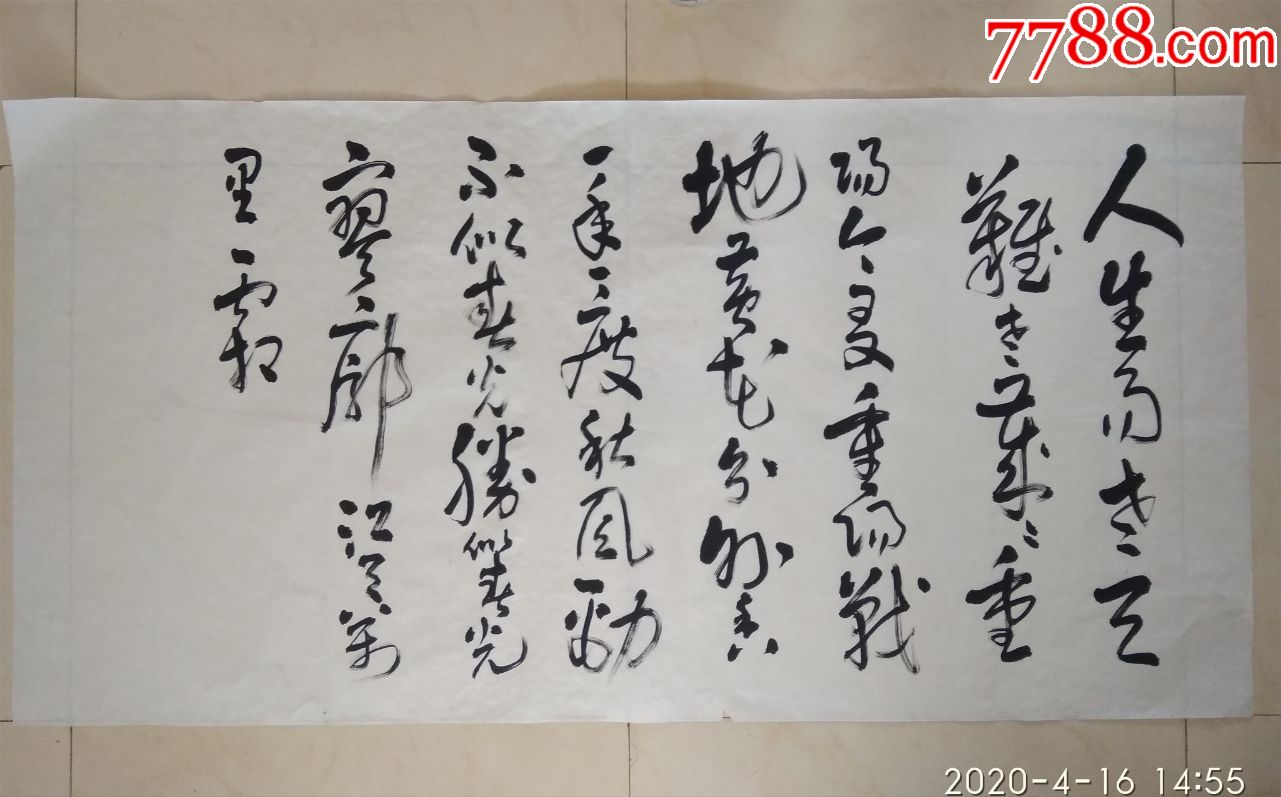 人生易老天
難老歲々重
陽今又重陽戰
地黄花分外香
一年一度秋風勁
不似春光勝似春光
寥廓江天萬
里霜
7788.com
2020-4-16 14:55